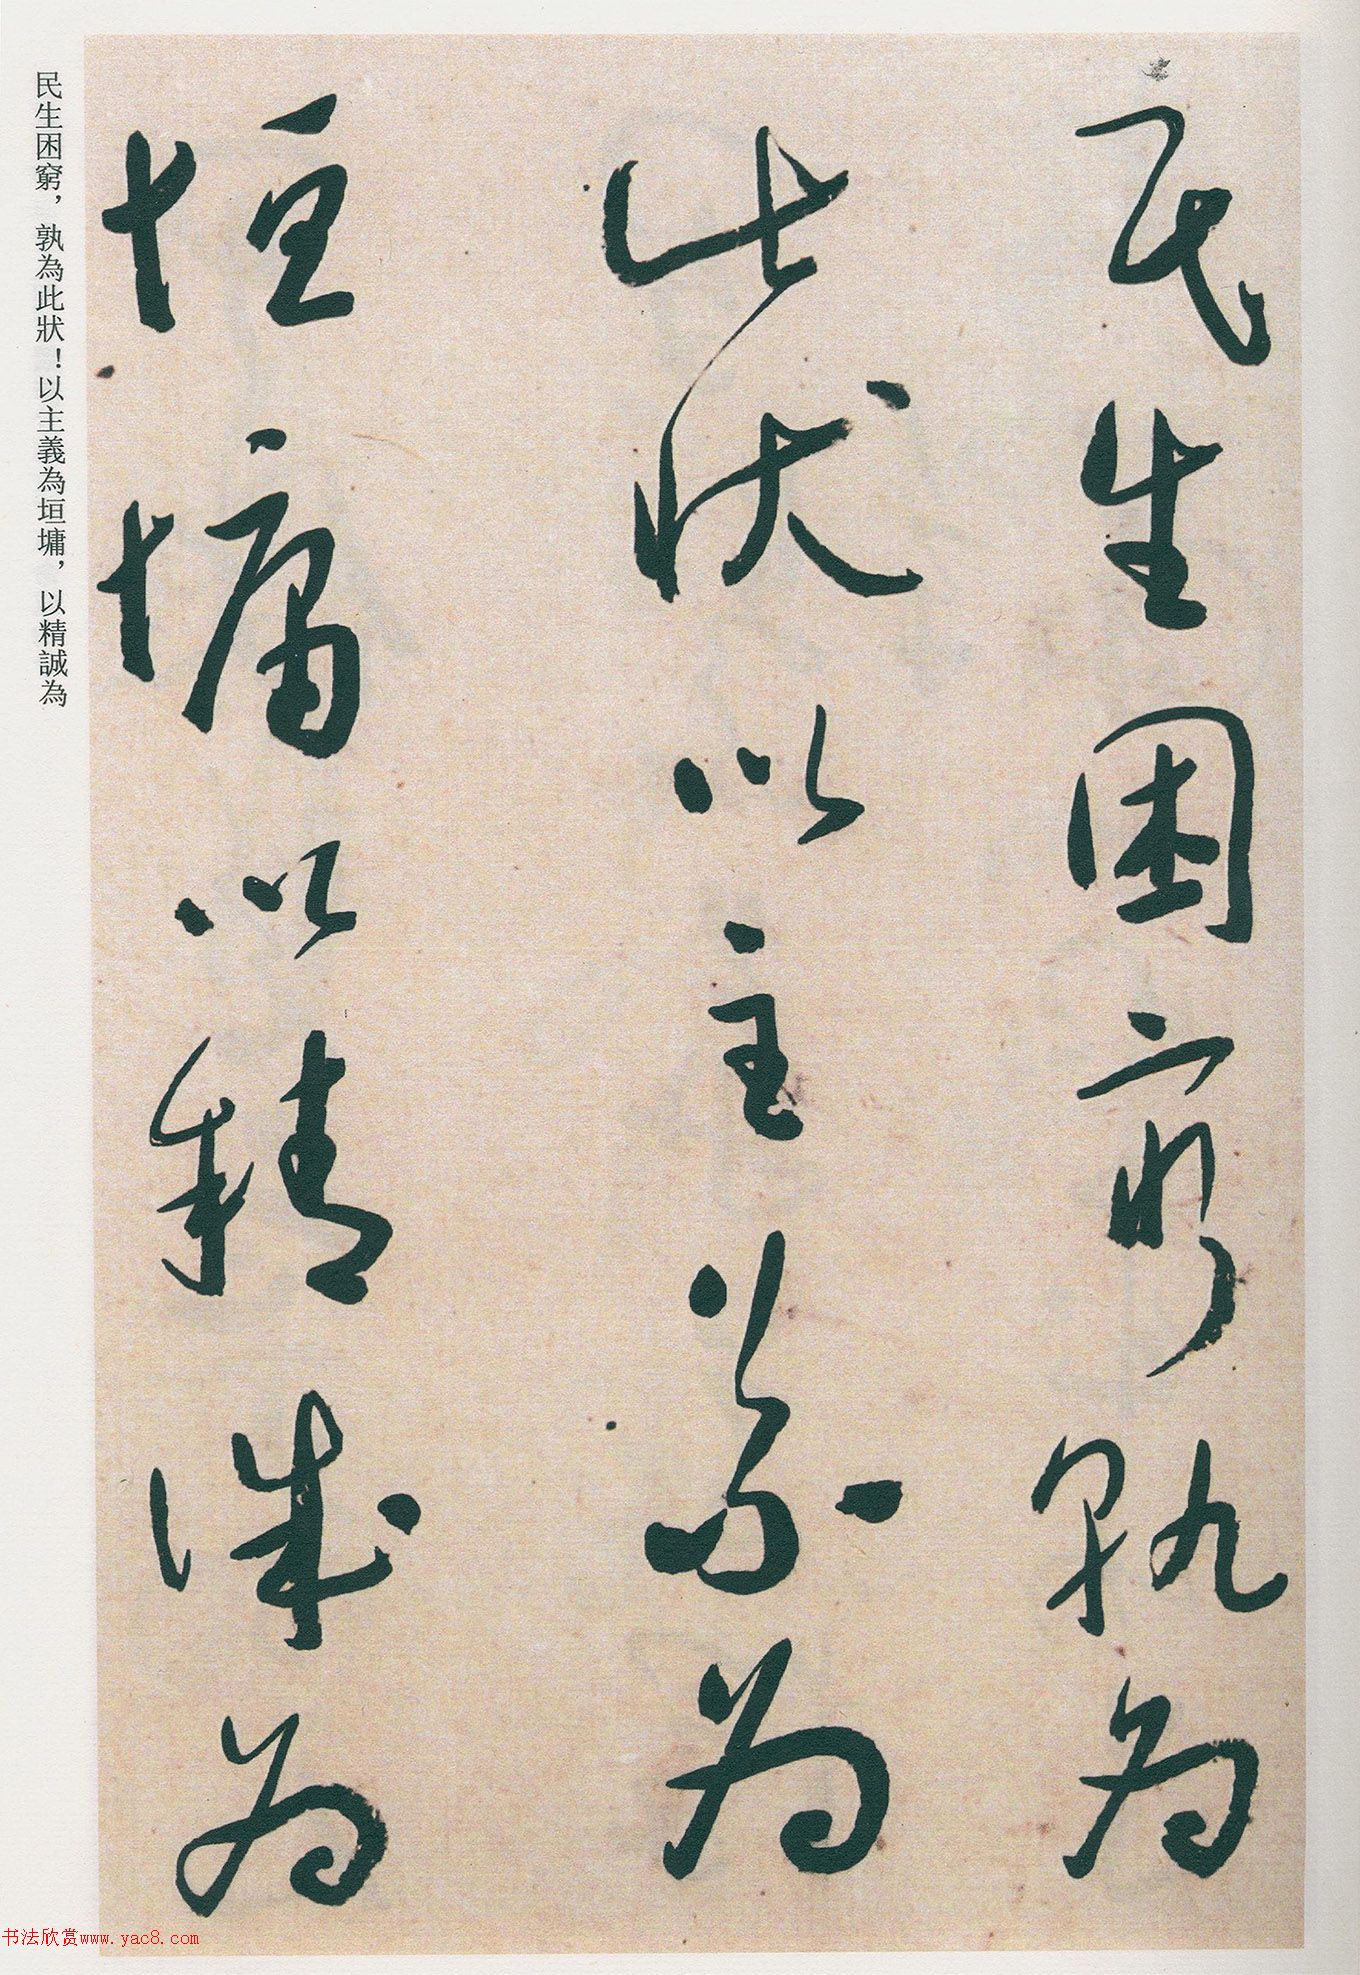 民生困窮孰為
此狀以主義為
垣墉以精誠為
民生困窮，孰為此狀！以主義為垣墉，以精誠為
书法欣赏www.yac8.com